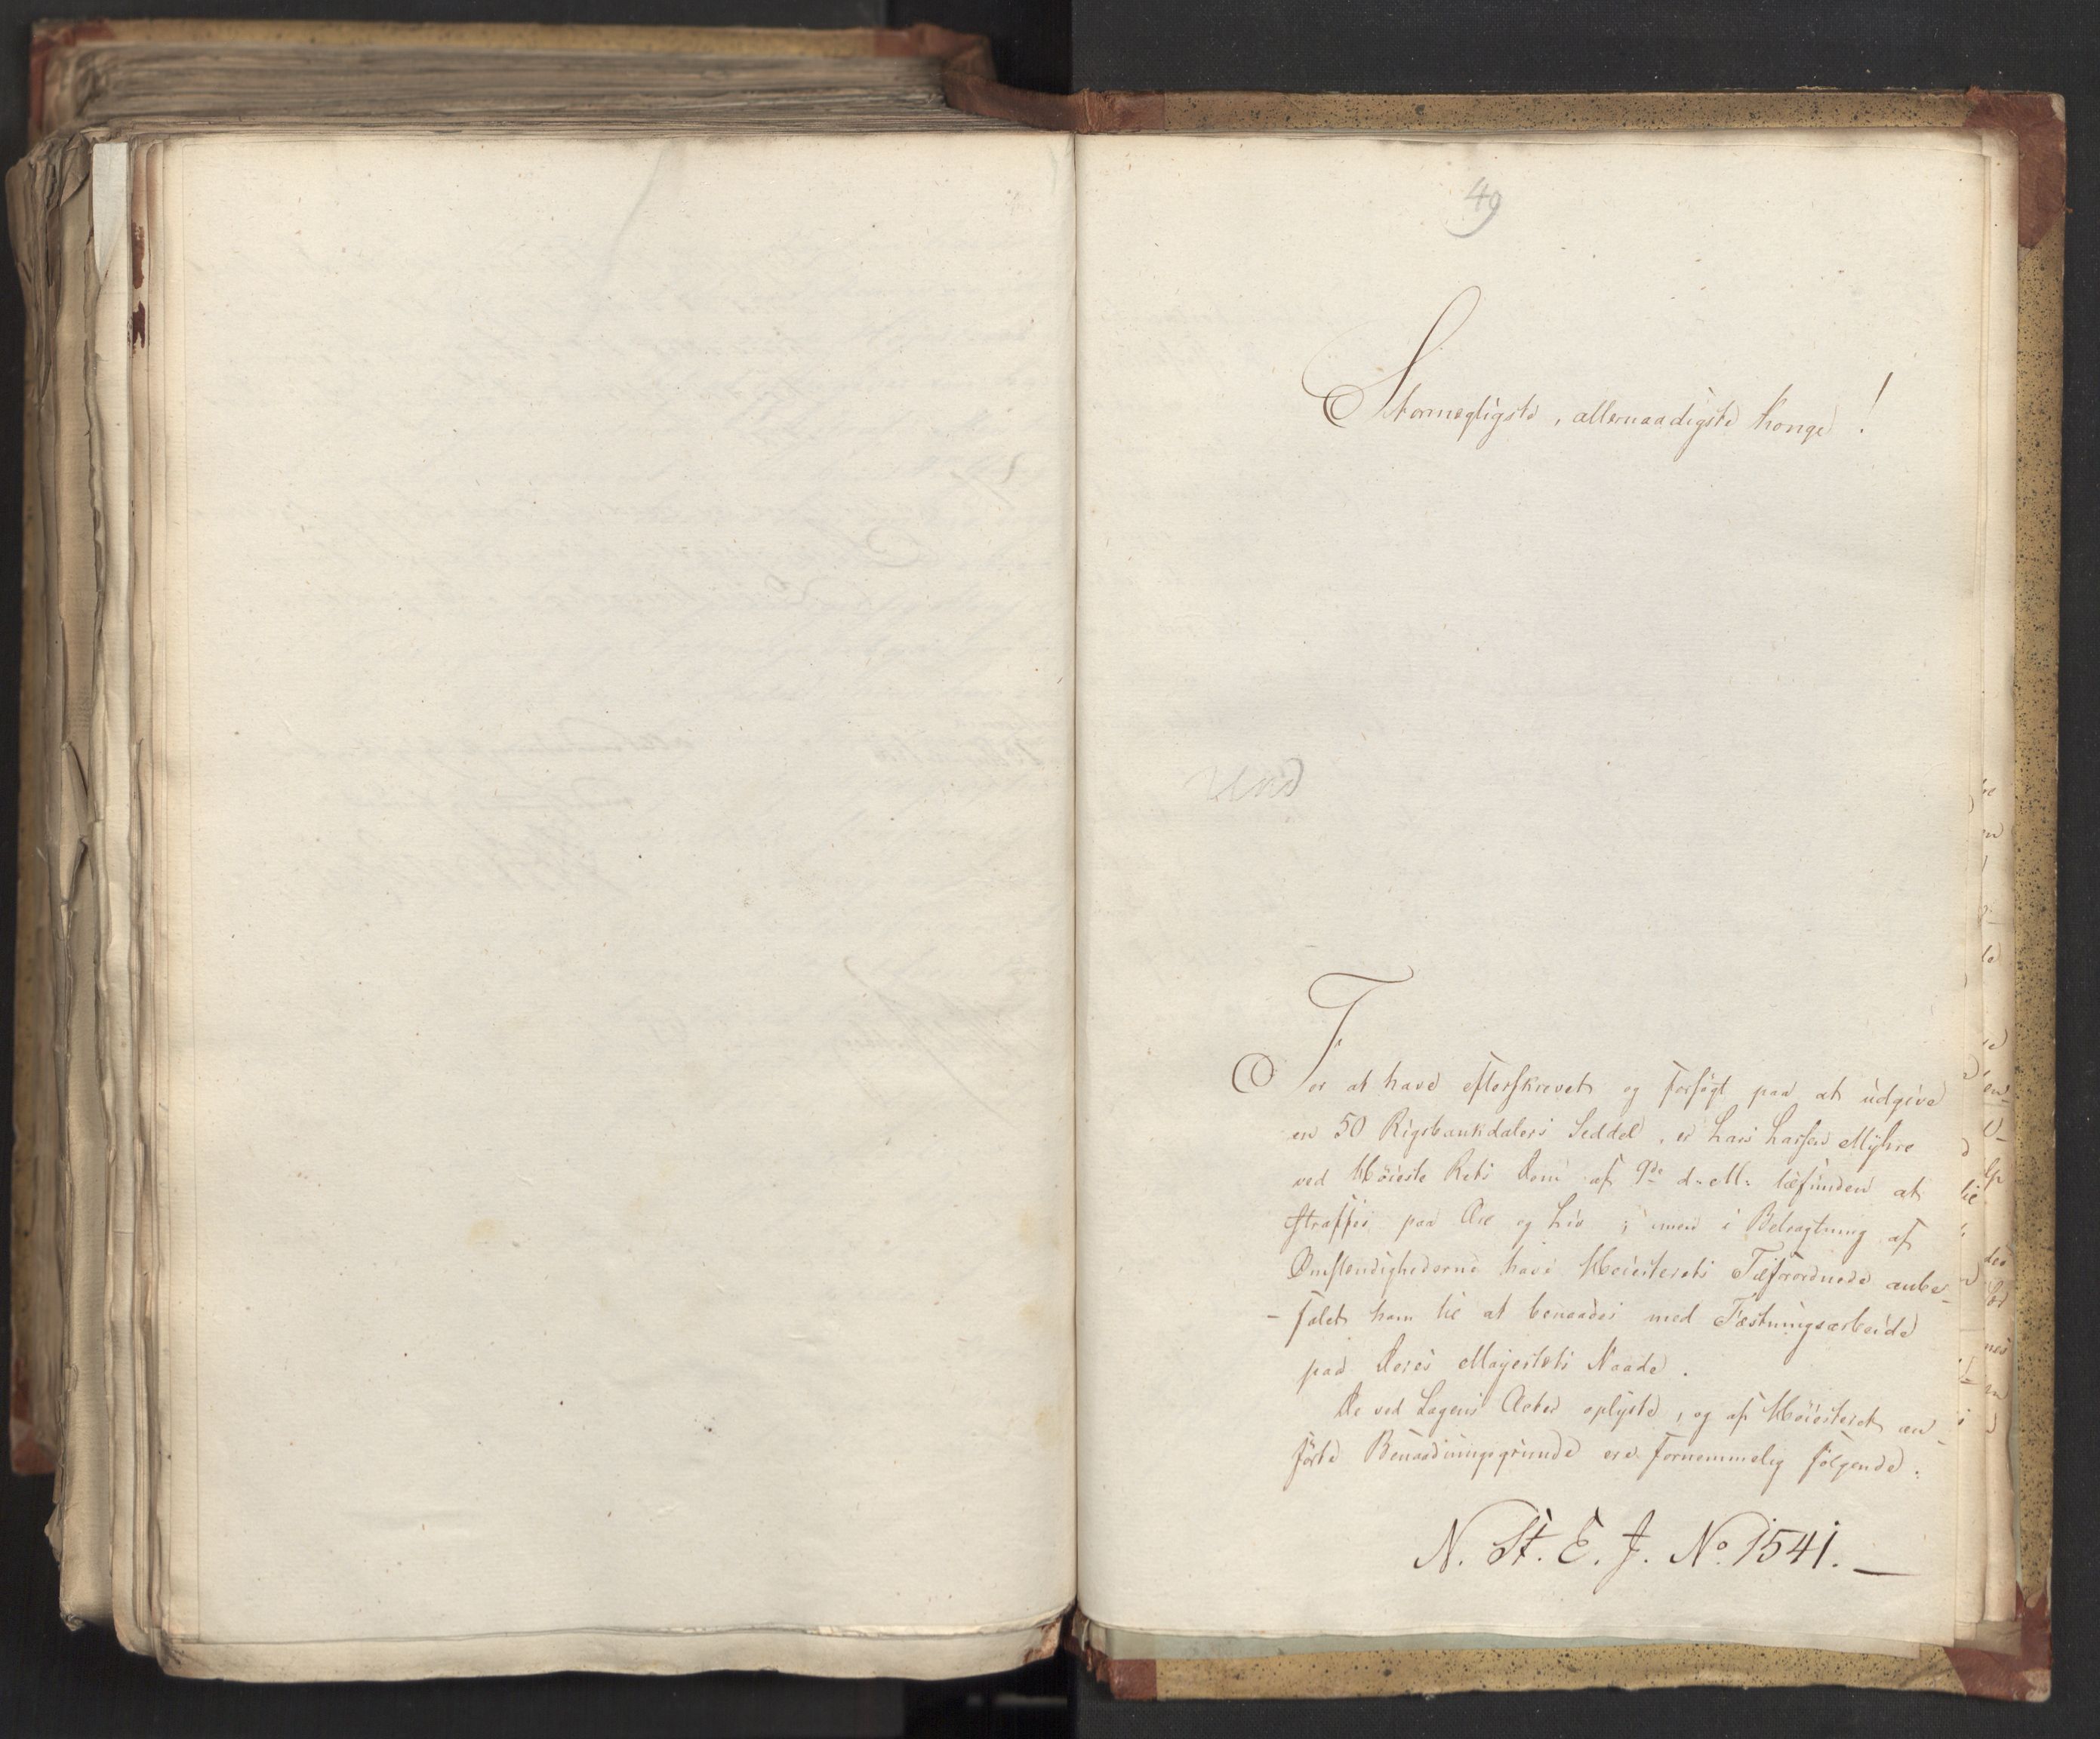 49
Stormægtigste, allernaadigste Konge!
For at have efterskrevet og forsøgt paa at udgive
en 50 Rigsbankdalers Seddel, er Lars Larsen Myhre
ved Höieste Rets Dom af 9de d. M. befunden at
straffes paa Ære og Liv; men i Betragtning af
Omstændighederne have Höiesterets Tilforordnede anbe-
-falet ham til at benaades med Fæstningsarbeide
paa Deres Majestæts Naade.
De ved Sagens Acter oplyste, og af Höiesteret an-
förte Benaadningsgrunde ere fornemmelig fölgende:
N. St. E. J. No. 1541.